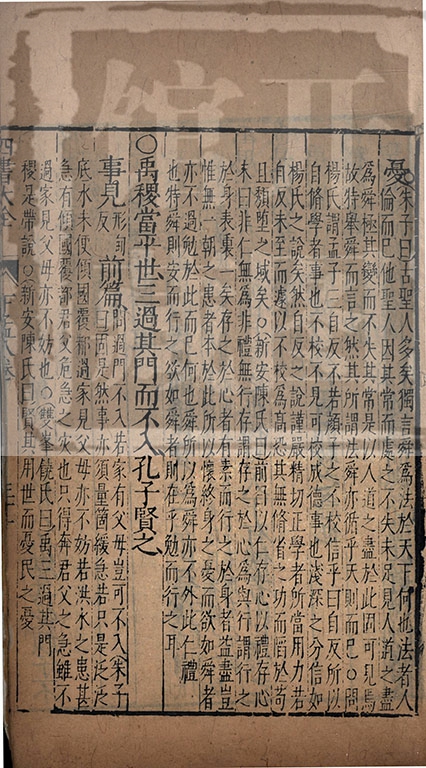 憂
朱子曰古聖人多矣獨言舜爲法於天下何也法者人
倫而已他聖人因其常而處之不失未足見人道之盡
爲舜極其變而不失其常是以人道之盡於此因可見焉
故特舉舜而言之然其所謂法舜亦循乎天則而已○問
楊氏謂孟子三自反不若顔子之不校信乎曰自反所以
自脩學者事也不校不見可校成德事也淺深之分信如
楊氏之說矣然自反之說謹嚴精切正學者所當用力若
自反未至而遽以不校爲高恐其無脩省之功而陷於苟
且頹墮之域矣○新安陳氏曰前言以仁存心以禮存心
末曰非仁無爲非禮無行存謂存之於心爲與行謂行之
於身表裏一矣存之於心者有素而行之於身者益盡豈
惟無一朝之患者本於此所以懷終身之憂而欲如舜者
亦不過勉於此而已何也舜所以爲舜亦不外此仁禮
也特舜則安而行之欲如舜者則在乎勉而行之耳
○禹稷當平世三過其門而不入孔子賢之
事見
形甸
反
前篇
問過門不入若家有父母豈可不入朱子
曰固是然事亦須量箇緩急若只是泛泛
底水未便傾國覆都過家見父母亦不妨若洪水之患甚
急有傾國覆都君父危急之灾也只得奔君父之急雖不
過家見父母亦不妨也○雙峯饒氏曰禹三過其門
稷是帶說○新安陳氏曰賢其用世而憂民之憂
四書大全